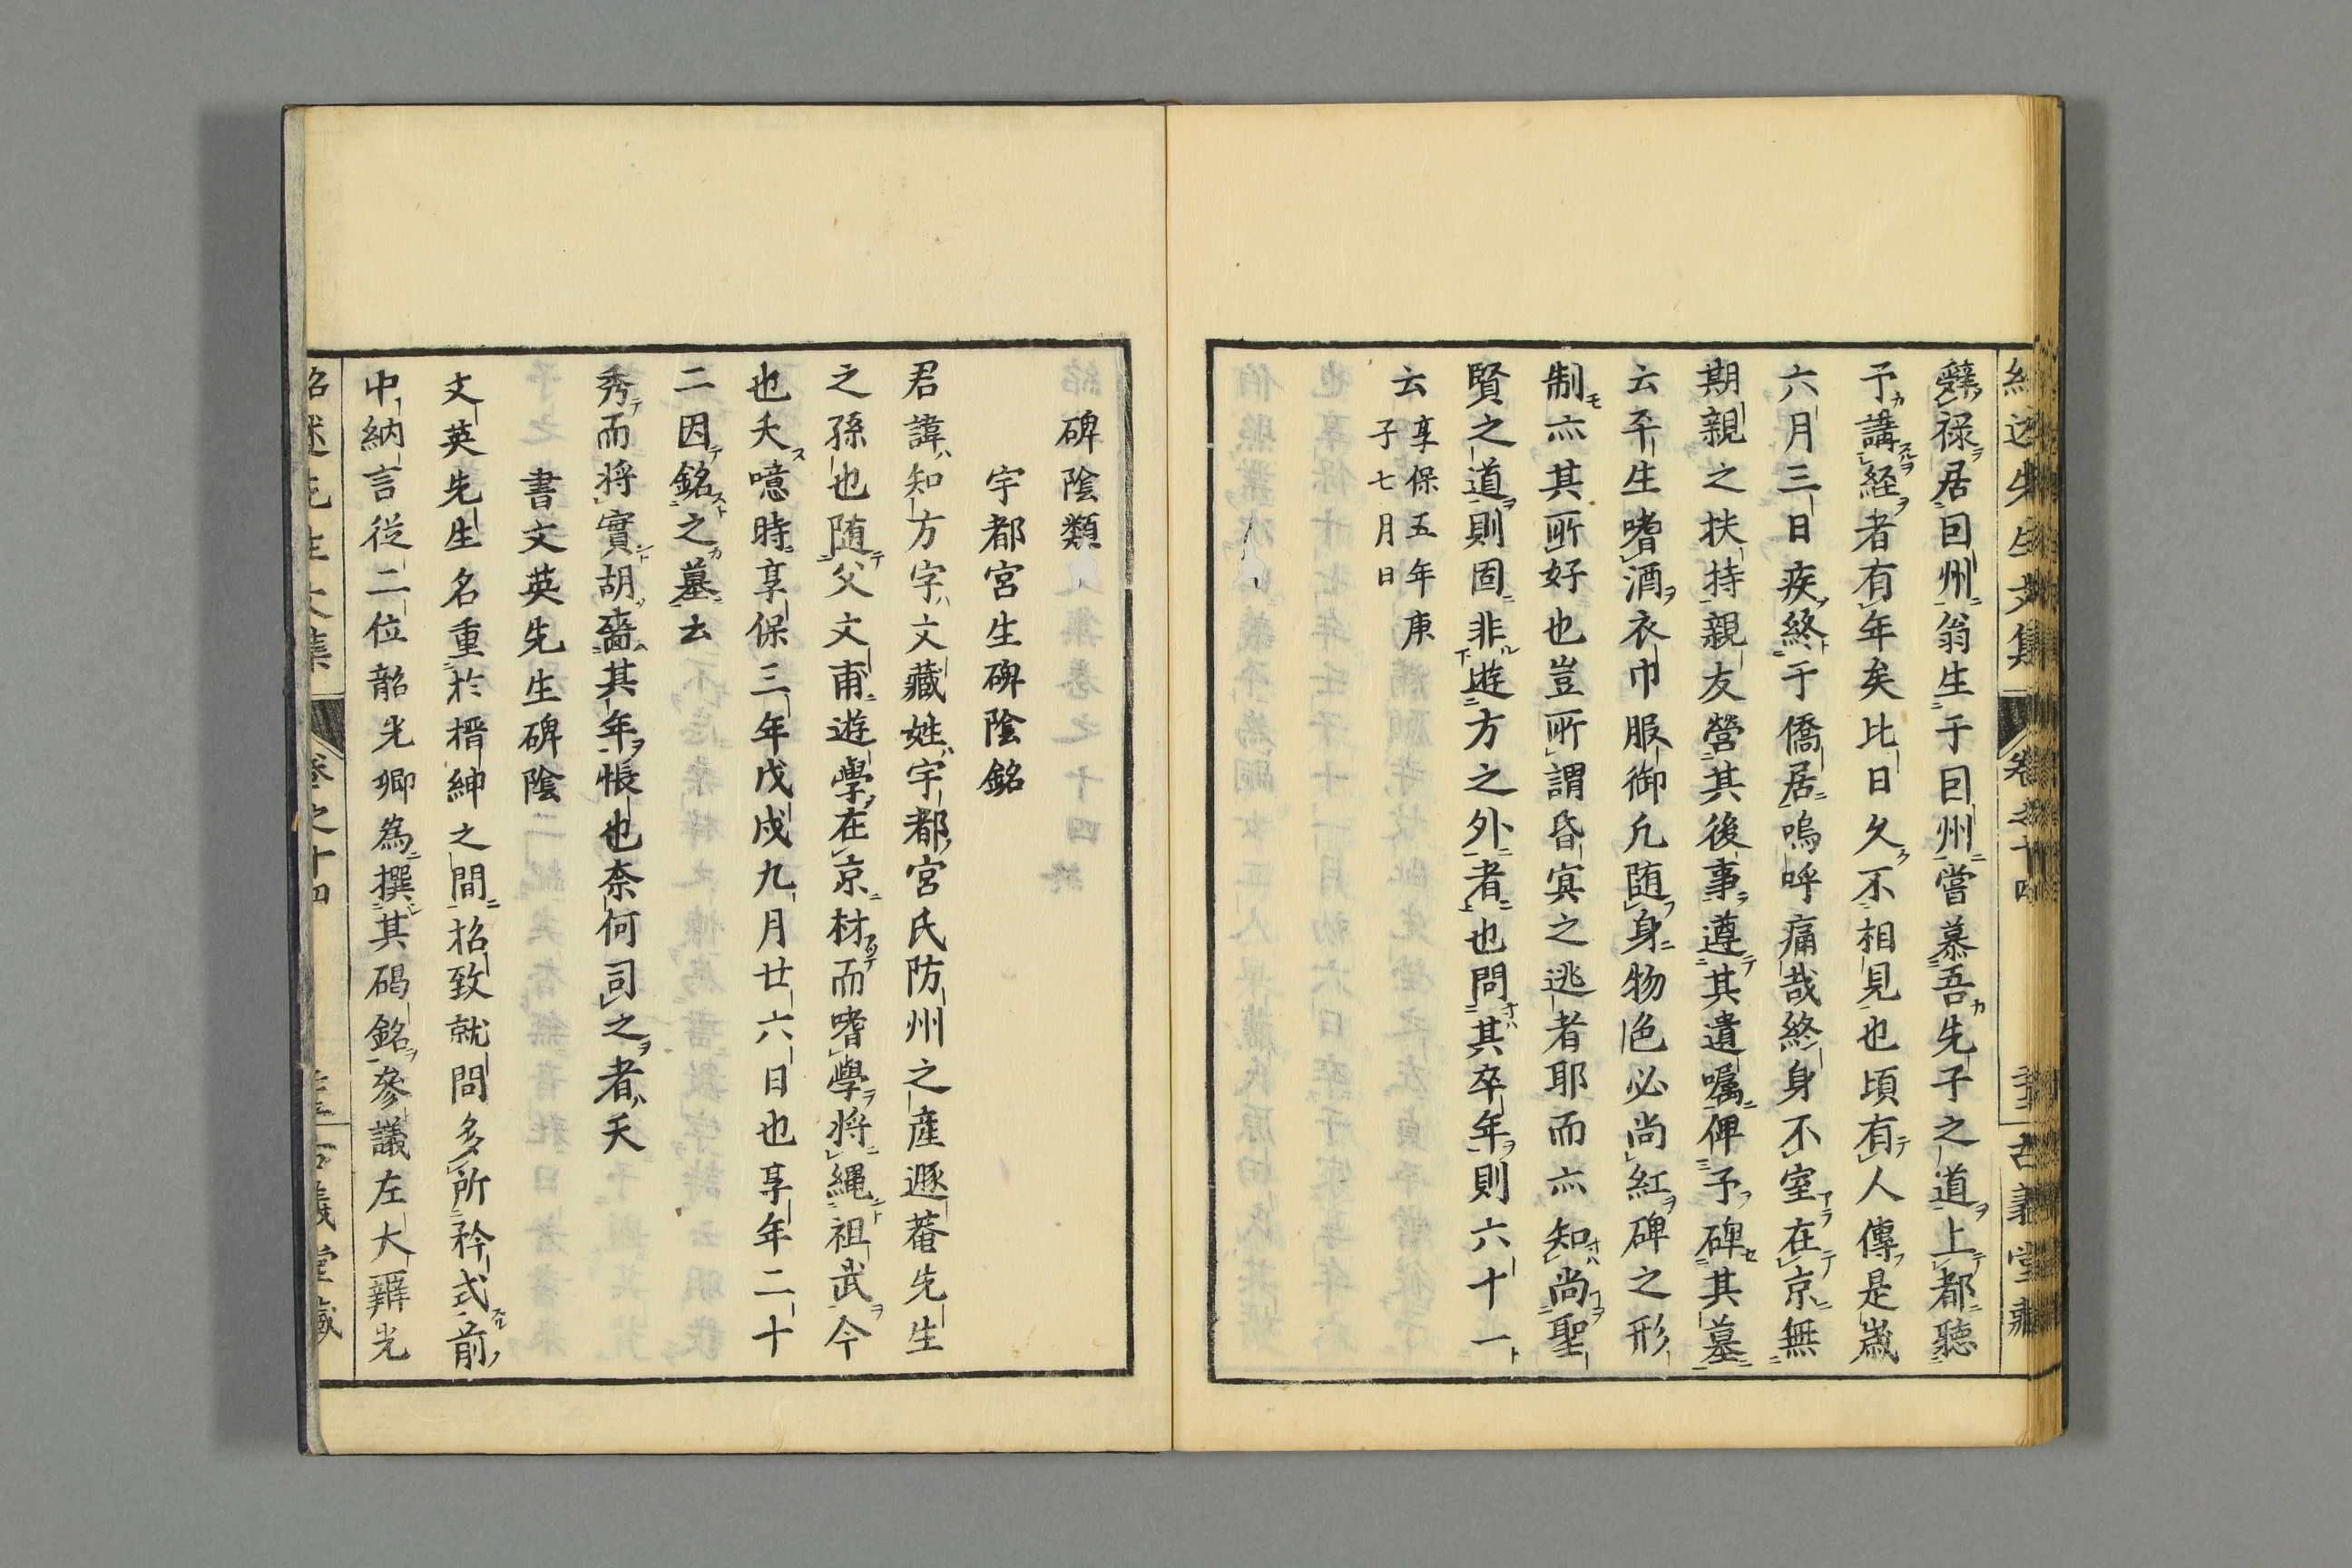 辤禄居因州翁生于因州嘗慕吾先子之道上都聽
予講経者有年矣比日久不相見也頃有人傳是歳
六月三日疾終于僑居嗚呼痛哉終身不室在京無
期親之扶持親友營其後事遵其遺囑俾予碑其墓
云平生嗜酒衣巾服御凢随身物色必尚紅碑之形
制亦其所好也豈所謂昏冥之逃者耶而亦知尚聖
賢之道則固非遊方之外者也問其卒年則六十一
云享保五年庚
子七月日
碑陰類
宇都宮生碑陰銘
君諱知方字文藏姓宇都宮氏防州之產遯菴先生
之孫也随父文甫遊學在京材而嗜學將縄祖武今
也夭噫時享保三年戊戌九月廿六日也享年二十
二因銘之墓云
秀而將實胡嗇其年悵也奈何司之者天
書文英先生碑陰
文英先生名重於搢紳之間招致就問多所矜式前
中納言從二位韶光卿為撰其碣銘參議左大辨光
紹述先生文集 卷之十四 古義堂藏